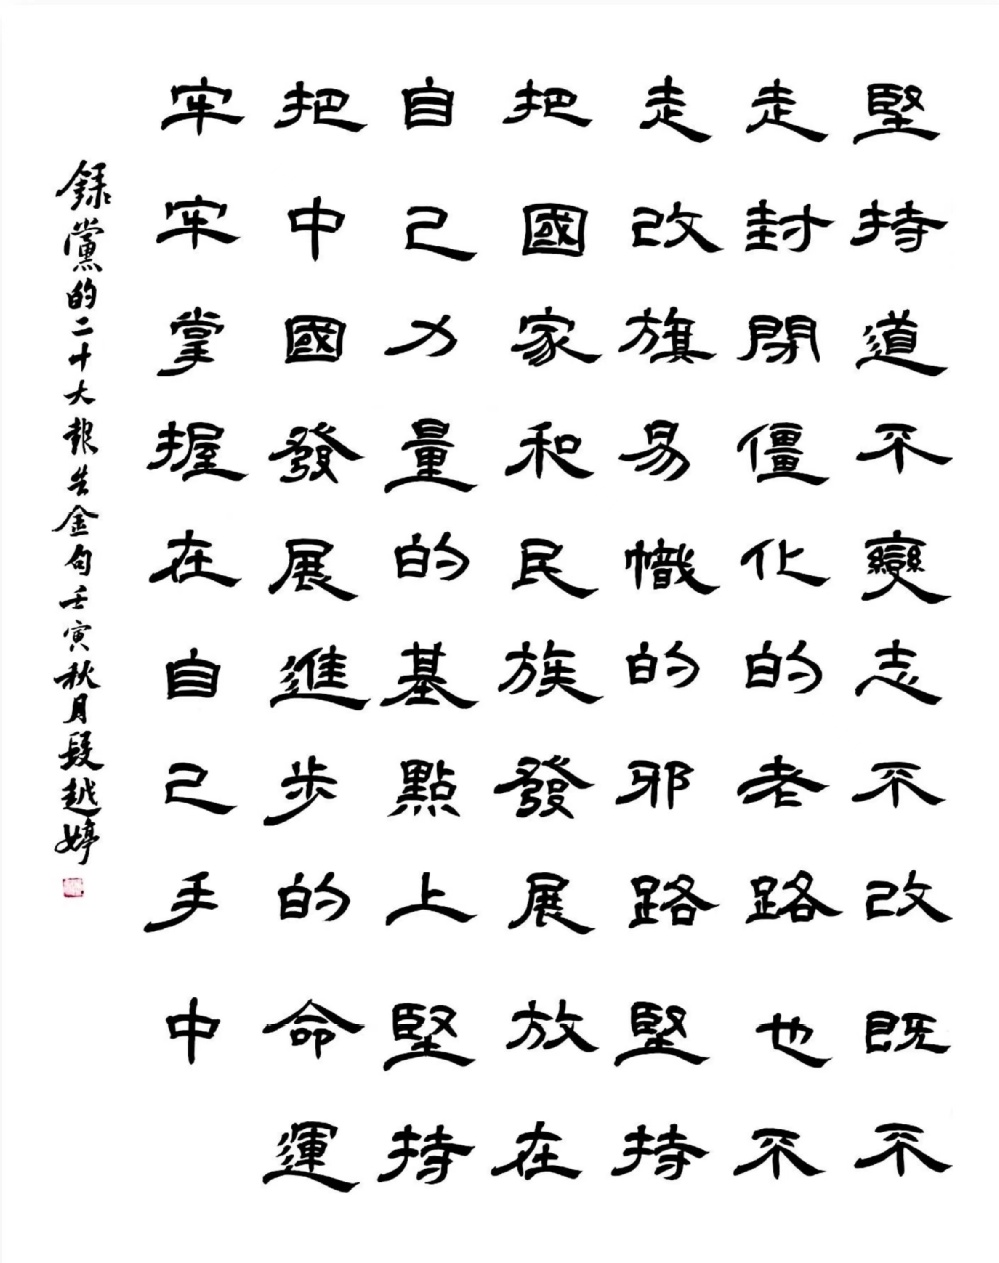 堅持道不變志不改既不
走封閉僵化的老路也不
走改旗易幟的邪路堅持
把國家和民族發展放在
自己力量的基點上堅持
把中國發展進步的命運
牢牢掌握在自己手中
録黨的二十大報告金句壬寅秋月段越婷